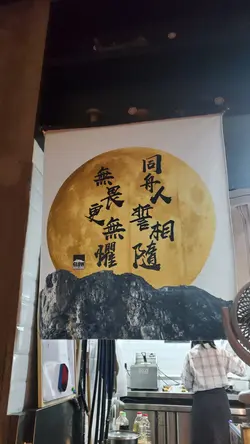 同舟人誓相隨
無畏更無懼